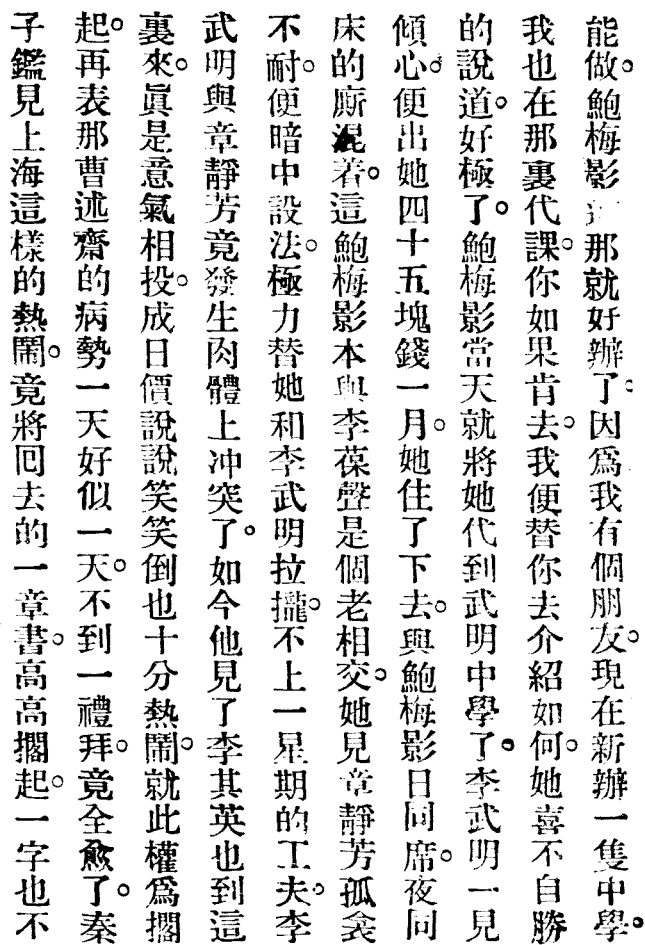 能做。鮑梅影道那就好辦了。因爲我有個朋友。現在新辦一隻中學。
我也在那裏代課。你如果肯去。我便替你去介紹如何。她喜不自勝
的說道。好極了。鮑梅影當天就將她代到武明中學了。李武明一見
傾心。便出她四十五塊錢一月。她住了下去。與鮑梅影日同席。夜同
床的廝混着。這鮑梅影本與李葆聲是個老相交。她見章靜芳孤衾
不耐。便暗中設法。極力替她和李武明拉攏。不上一星期的工夫。李
武明與章靜芳竟發生肉體上冲突了。如今他見了李其英也到這
裏來。眞是意氣相投。成日價說說笑笑倒也十分熱鬧。就此權爲擱
起。再表那曹述齋的病勢一天好似一天。不到一禮拜。竟全愈了。秦
子鑑見上海這樣的熱鬧。竟將囘去的一章書。高高擱起。一字也不